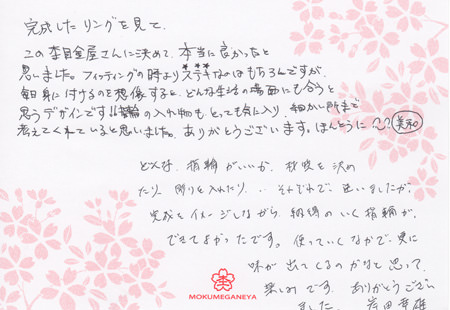 完成したリングを見て、
この杢目金屋さんに決めて、本当に良かったと
思いました。フィッティングの時よりステキなのはもちろんですが、
毎日身に付けるのを想像すると、どんな生活の場面にも合うと
思うデザインです!!指輪の入れ物も、とっても気に入り、細かい所まで
考えてくれていると思いました。ありがとうございます。ほんとうに
美和
どんな、指輪がいいか、材質を決め
たり、彫りを入れたり、、それぞれで、迷いましたが、
完成をイメージしながら、納得のいく指輪が、
できてよかったです。使っていくなかで、更に
味が出てくるのかなと思って、
楽しみです。ありがとうござい
ました。岸田幸雄
MOKUMEGANEYA